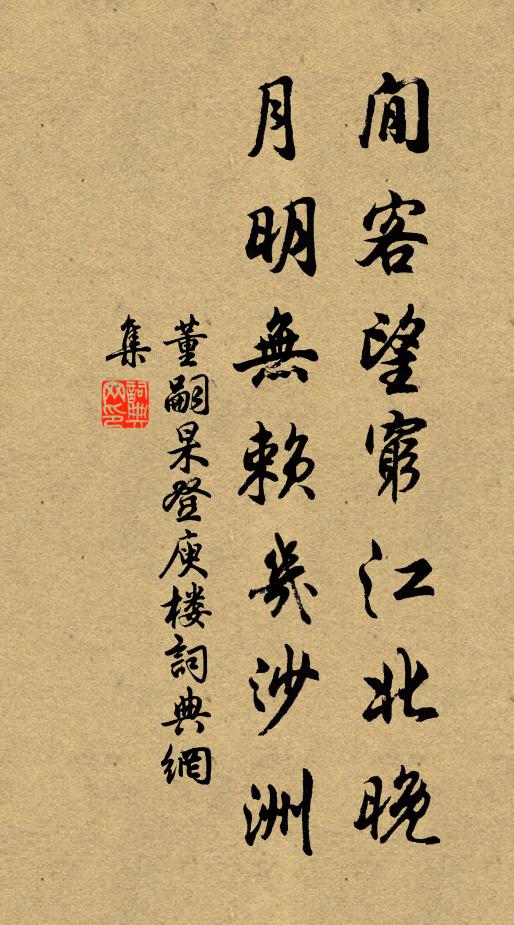 閒客望窮江北晚
月明無賴幾沙洲
董嗣杲登庾樓詞典網
集
詞典
网印